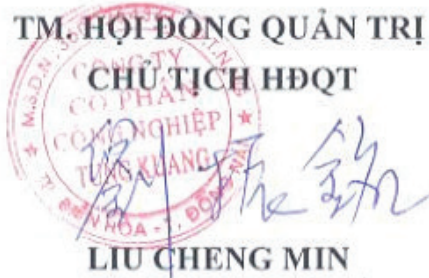 TM. HỘI ĐỒNG QUẢN TRỊ
CHỦ TỊCH HĐQT
CÔNG TY
CỔ PHẦN
CÔNG NGHIỆP
TUNG KUANG
LIU CHENG MIN